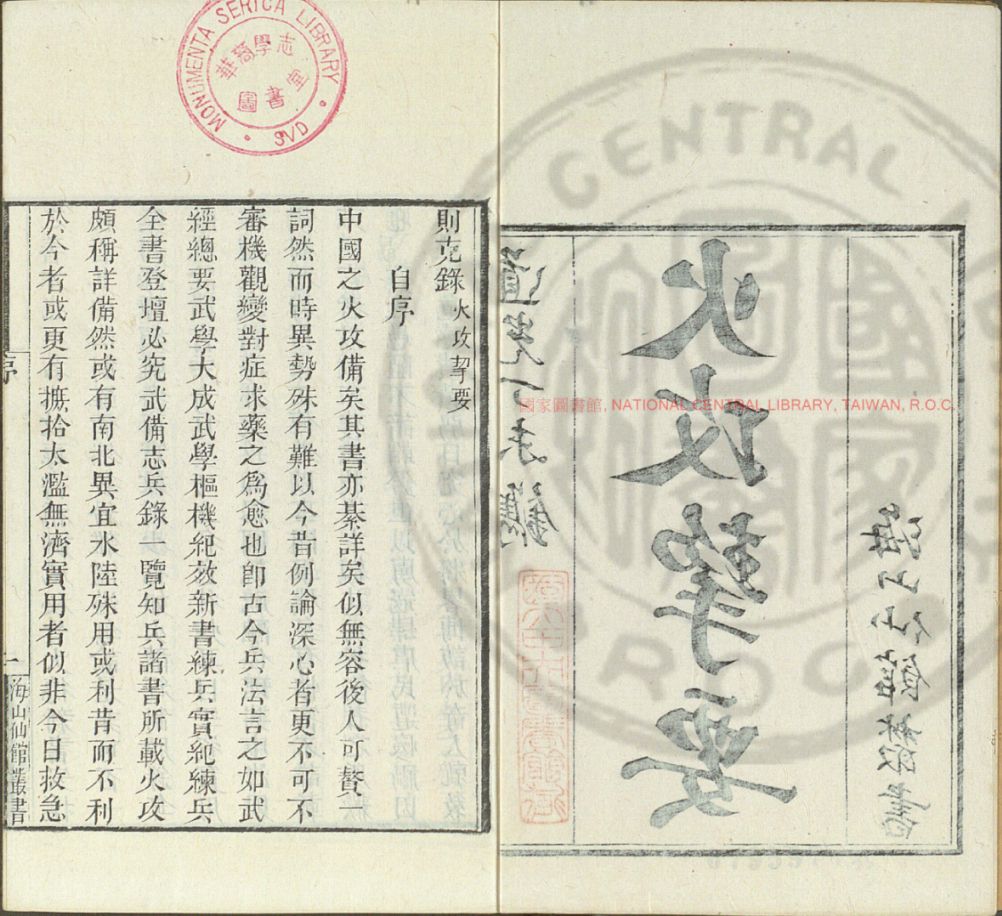 海山仙館叢書
火攻挈要
道光丁未鐫
國家圖書館, NATIONAL CENTRAL LIBRARY, TAIWAN, R.O.C.
CENTRAL
R.O.C.
MONUMENTA SERICA LIBRARY
SVD
華裔學志
圖書室
則克錄 火攻挈要
自序
中國之火攻備矣其書亦綦詳矣似無容後人可贅一
詞然而時異勢殊有難以今昔例論深心者更不可不
審機觀變對症求藥之爲愈也卽古今兵法言之如武
經總要武學大成武學樞機紀效新書練兵實紀練兵
全書登壇必究武備志兵錄一覽知兵諸書所載火攻
頗稱詳備然或有南北異宜水陸殊用或利昔而不利
於今者或更有摭拾太濫無濟實用者似非今日救急
序
一
海山仙館叢書